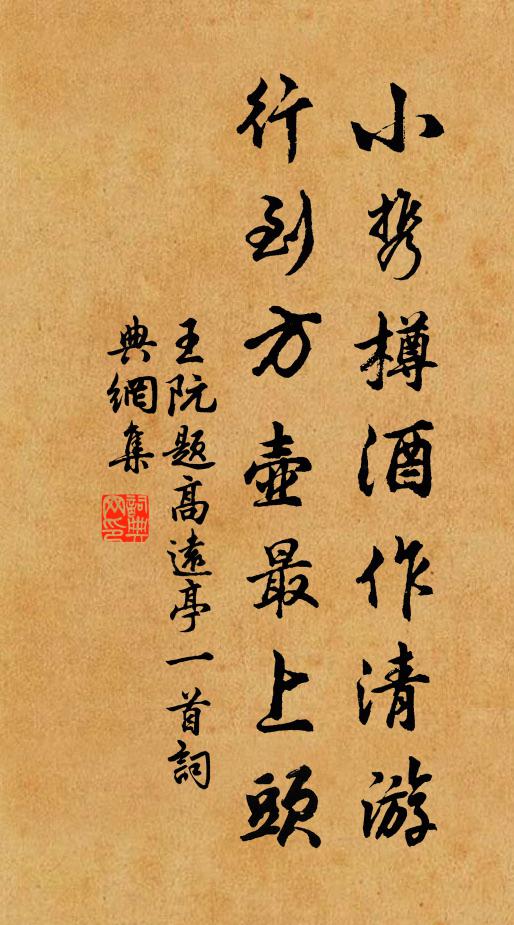 小携樽酒作清游
行到方壶最上頭
王阮题高遠亭一首詞
典網集
詞典网印